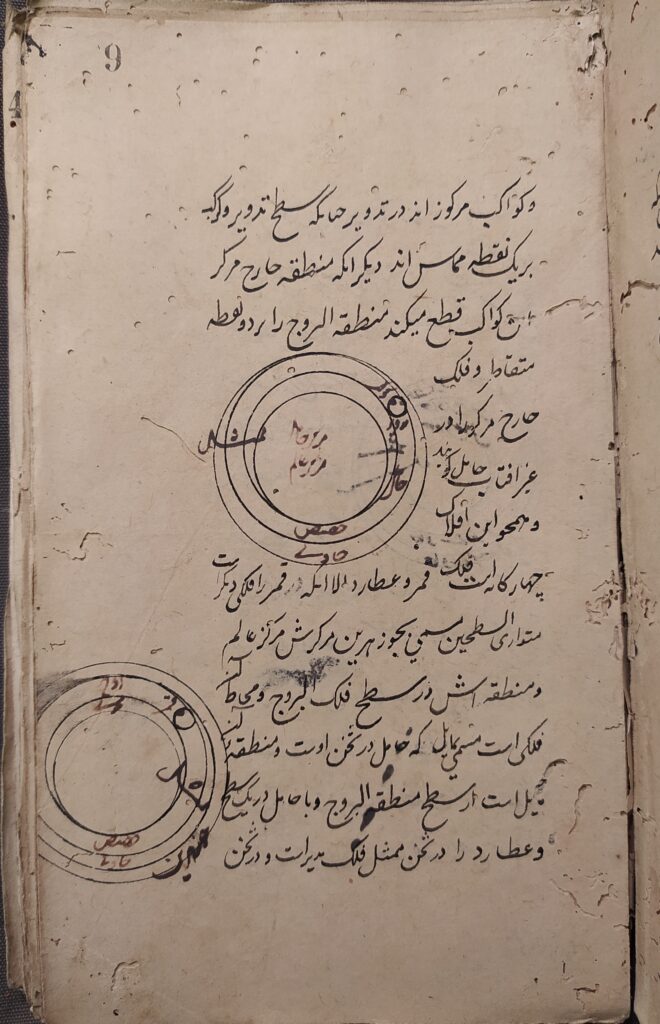 9
4
و کواکب مرکوز اند در تدویر چنانکه سطح تدویر و کوکب
بریک نقطه مماس اند دیگر انکه منطقه خارج مرکز
کواکب قطع میکند منطقه البروج را بر دو نقطه
متقاطر و فلک
خارج مرکز را در
غیر افتاب حامل گویند
و همچو این افلاک
چهارگانه است فلک قمر و عطارد الا انکه قمر را فلکی دیگر است
متوازی السطحین مسمی بجوزهرین مرکزش مرکز عالم
و منطقه اش در سطح فلک البروج و محاط
فلکی است مسمی بمایل که حامل در ثخن اوست و منطقه
مایل است از سطح منطقه البروج و با حامل دریک سطح
و عطارد را در ثخن ممثل فلک مدیر است و در ثخن
ممثل
مرکز خارج
مرکز عالم
حضیض
اوج
حضیض